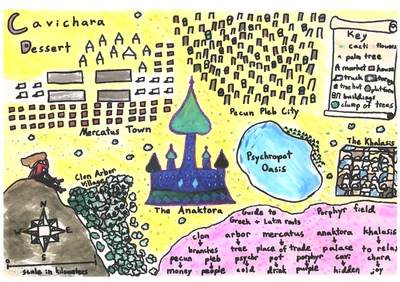 Cavichara
Dessert
Key
cacti flowers
palm tree
market house
truck
buildings
clump of trees
Mercatus Town
Pecun Pleb City
Psychropot
Oasis
The Khalasis
Clon Arbor
Village
The Anaktora
Guide to
Greek + Latin roots
Porphyr field
clon arbor mercatus anaktora khalasis
branches tree place of trade palace to relax
pecun pleb psychr pot porphyr cav chara
money people cold drink purple hidden joy
scale in kilometers
N